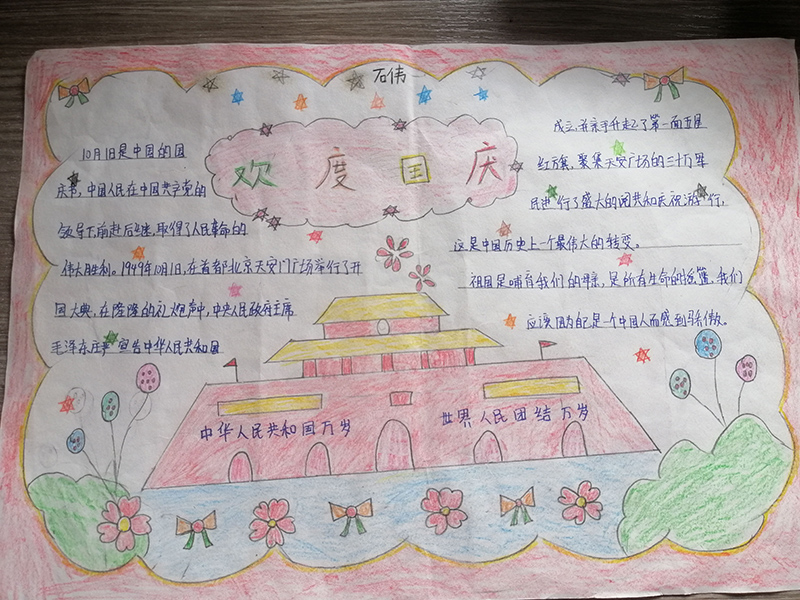 石伟
欢度国庆
10月1日是中国的国
庆节,中国人民在中国共产党的
领导下,前赴后继,取得了人民革命的
伟大胜利。1949年10月1日,在首都北京天安门广场举行了开
国大典,在隆隆的礼炮声中,中央人民政府主席
毛泽东庄严宣告中华人民共和国
成立,并亲手升起了第一面五星
红旗,聚集天安广场的三十万军
民进行了盛大的阅兵和庆祝游行,
这是中国历史上一个最伟大的转变。
祖国是哺育我们的母亲,是所有生命的摇篮,我们
应该因为自己是一个中国人而感到骄傲。
中华人民共和国万岁
世界人民团结万岁